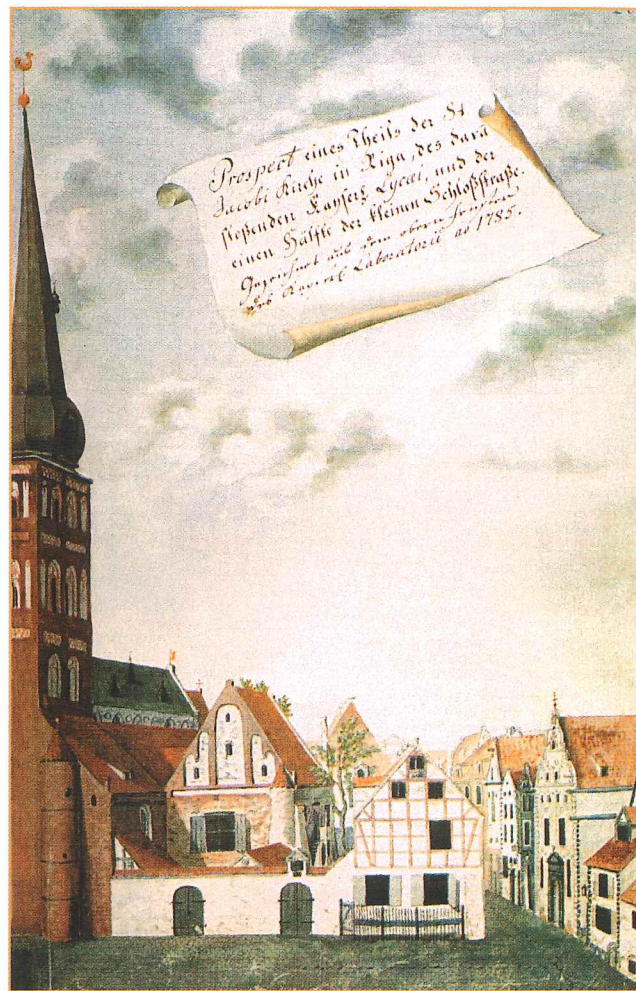 Prospect eines Theils der St
Jacobi Kirche in Riga, des dara
stoßenden Kayserl Lycei, und der
einen Hälfte der kleinen Schloßstraße.
Gezeichnet aus dem obern Fenster
des Kayserl Laboratorii ao 1785.